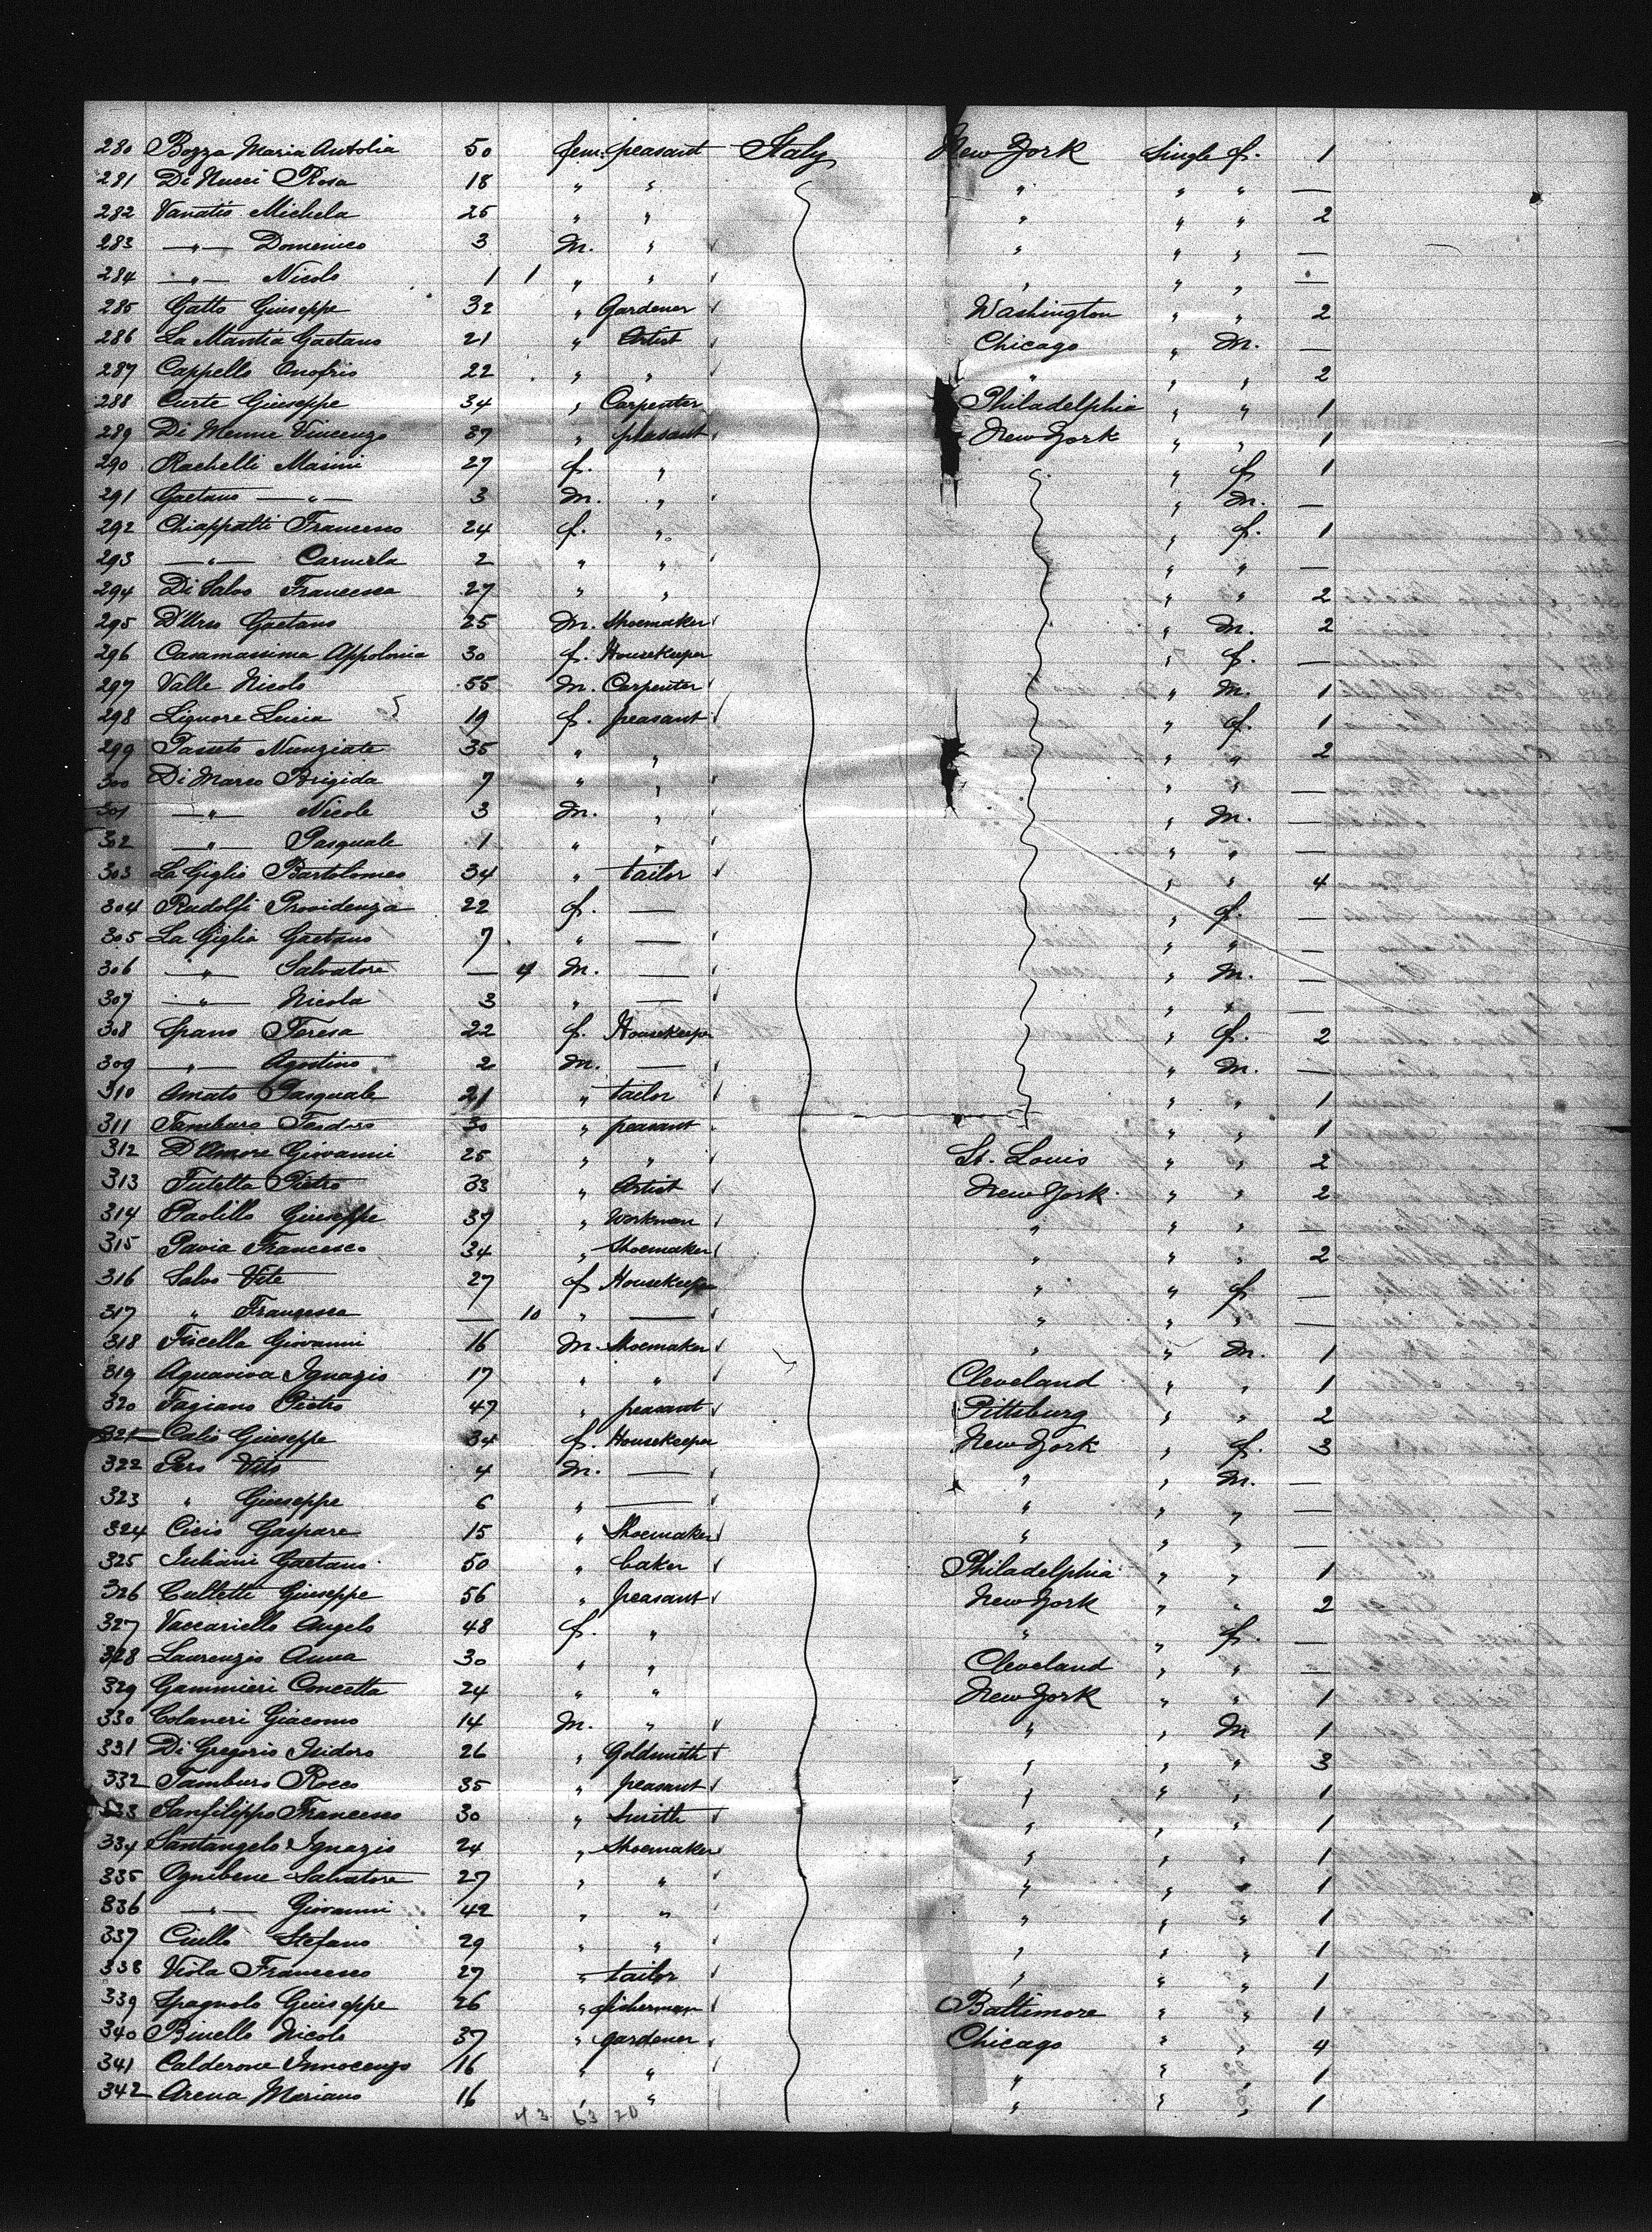 280 Bozza Maria Antolia 50 fem. peasant Italy New York Single f. 1
281 Di Nucci Rosa 18 " " " " " —
282 Vanatio Michela 25 " " " " " 2
283 —"— Domenico 3 M. " " " " —
284 —"— Nicolo 1 1 " " " " " —
285 Gatto Giuseppe 32 " Gardener Washington " " 2
286 La Mantia Gaetano 21 " Artist Chicago " M. —
287 Cappello Onofrio 22 " " " " " 2
288 Curte Giuseppe 34 " Carpenter Philadelphia " " 1
289 Di Menna Vincenzo 37 " peasant New York " " 1
290 Rachelli Masini 27 f. " " f 1
291 Gaetano —"— 3 M. " " M. —
292 Chiappatti Francesco 24 f. " " f. 1
293 —"— Carmela 2 " " " " —
294 Di Salvo Francesca 27 " " " " 2
295 D'Urso Gaetano 25 M. Shoemaker " M. 2
296 Casamassima Appolonia 30 f. Housekeeper " f. —
297 Valle Nicolo 55 M. Carpenter " M. 1
298 Liguore Lucia 19 f. peasant " f. 1
299 Nunziate 35 " " " " 2
300 Di Marco Brigida 7 " " " " —
301 —"— Nicole 3 M. " " M. —
302 —"— Pasquale 1 " " " " —
303 La Giglio Bartolomeo 34 " tailor " " 4
304 Rudolfi Providenza 22 f. — " f. —
305 La Giglia Gaetano 7 " — " " —
306 —"— Salvatore — 4 M. — " M. —
307 —"— Nicola 3 " — " " —
308 Spano Teresa 22 f. Housekeeper " f. 2
309 —"— Agostino 2 M. — " M. —
310 Amato Pasquale 21 " tailor " " 1
311 Tamburo Teodoro 30 " peasant " " 1
312 D'Amore Giovanni 25 " " St. Louis " " 2
313 Tutetta Pietro 33 " Artist New York " " 2
314 Paolillo Giuseppe 37 " Workman " " " —
315 Pavia Francesco 34 " Shoemaker " " " 2
316 Salvo Vita 27 f Housekeeper " " f —
317 " Francesca — 10 " — " " " —
318 Fricella Giovanni 16 M. Shoemaker " " M. 1
319 Aquaviva Ignazio 17 " " Cleveland " " 1
320 Fagiano Pietro 47 " peasant Pittsburg " " 2
321 Calo Giuseppe 34 f. Housekeeper New York " f. 3
322 Pero Vito 4 M. — " " M. —
323 " Giuseppe 6 " — " " " —
324 Cicio Gaspare 15 " Shoemaker " " " —
325 Iuliani Gaetano 50 " baker Philadelphia " " 1
326 Cultetti Giuseppe 56 " peasant New York " " 2
327 Vaccariello Angelo 48 f. " " " f. —
328 Laurenzio Anna 30 " " Cleveland " " —
329 Gammieri Concetta 24 " " New York " " 1
330 Colaneri Giacomo 14 M. " " " M 1
331 Di Gregorio Isidoro 26 " Goldsmith " " " 3
332 Tamburo Rocco 35 " peasant " " " 1
333 Sanfilippo Francesco 30 " Smith " " " 1
334 Santangelo Ignazio 24 " Shoemaker " " " 1
335 Ognibene Salvatore 27 " " " " " 1
336 —"— Giovanni 42 " " " " " 1
337 Ciullo Stefano 29 " " " " " 1
338 Viola Francesco 27 " tailor " " " 1
339 Spagnolo Giuseppe 26 " fisherman Baltimore " " 1
340 Binello Nicolo 37 " gardener Chicago " " 4
341 Calderone Innocenzo 16 " " " " " 1
342 Arena Mariano 16 " " " " " 1
43 63 20